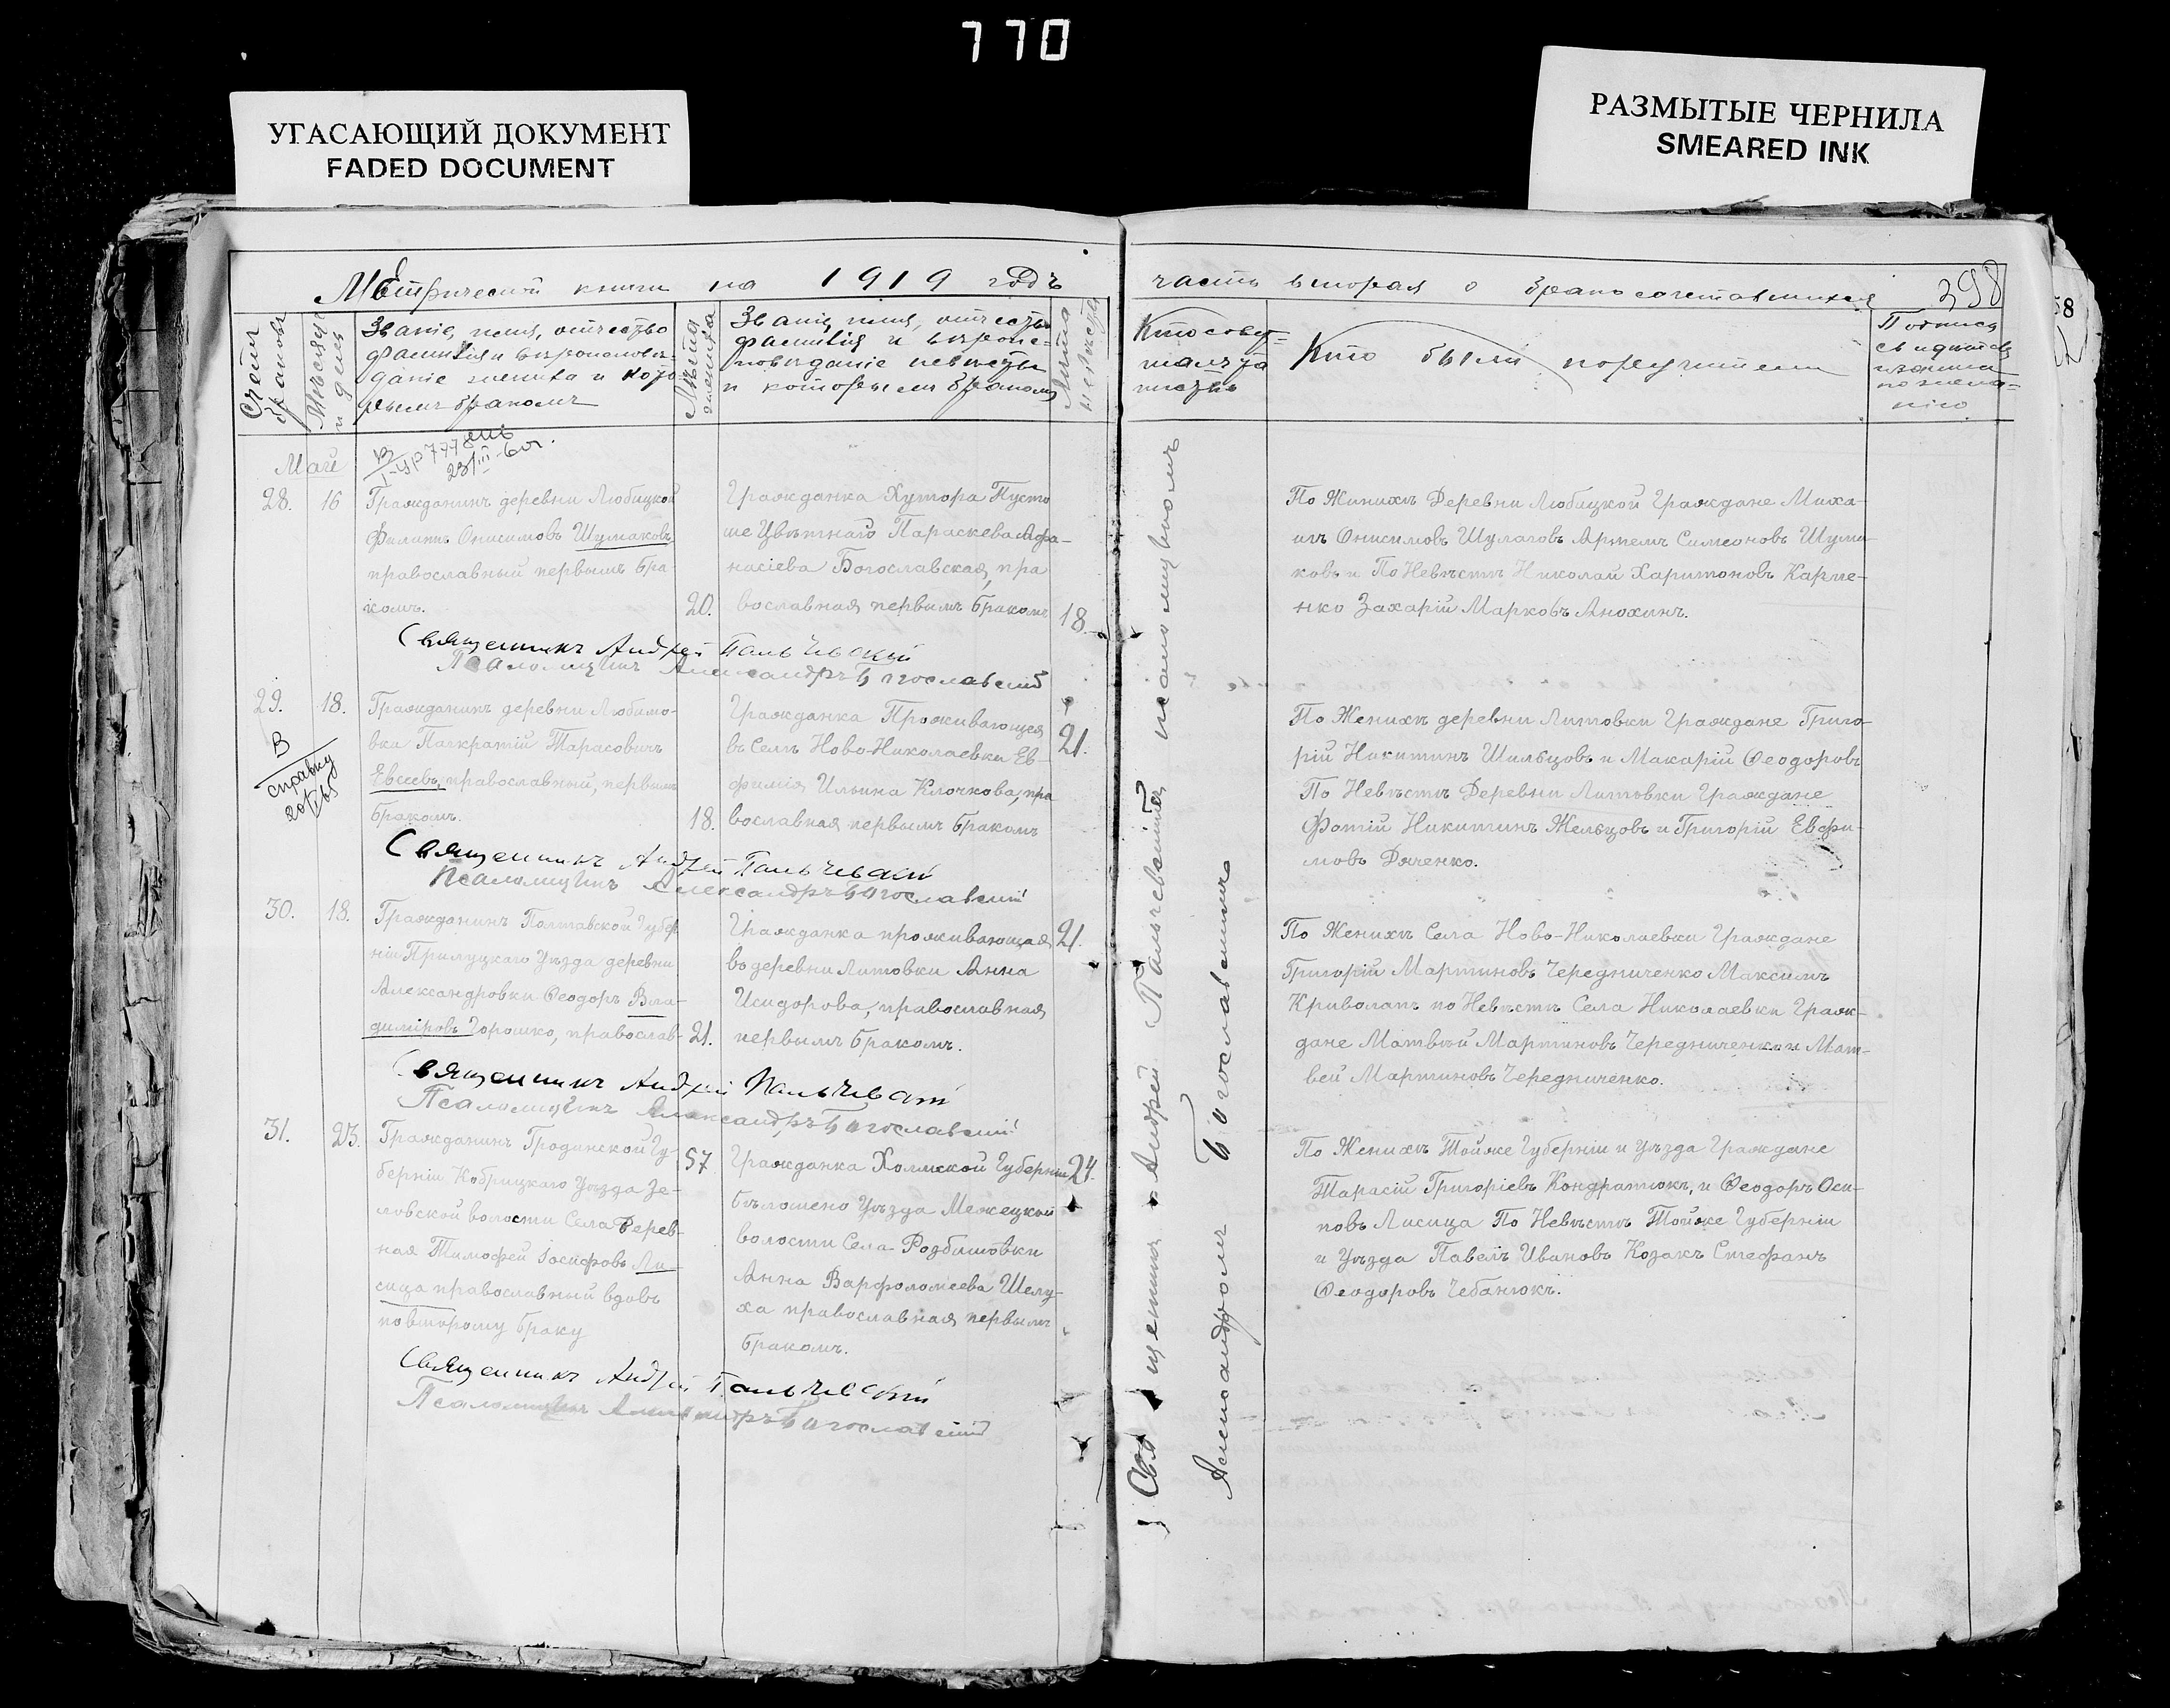 770
УГАСАЮЩИЙ ДОКУМЕНТ
FADED DOCUMENT
РАЗМЫТЫЕ ЧЕРНИЛА
SMEARED INK
Метрической книги на 1919 годъ
часть вторая о бракосочетавшихся
398
58
Счетъ браковъ
Мѣсяцъ и день
Званіе, имя, отчество
фамилія и вѣроисповѣ-
даніе жениха и кото-
рымъ бракомъ
Лѣта жениха
Званіе, имя, отчество
фамилія и вѣроис-
повѣданіе невѣсты
и которымъ бракомъ
Лѣта невѣсты
Кто совер-
шалъ та
инства
Кто были поручители
Подпись
свидѣтел
по жела-
нію
Май
28. 16
Гражданинъ деревни Любицкой
Филиппъ Онисимовъ Шумаковъ
православный первымъ бра
комъ.
20.
Гражданка Хутора Пусто
ше Цвѣтнаго Параскева Афа-
насіева Богославская, пра
вославная первымъ бракомъ
18
По Женихѣ Деревни Любицкой Граждане Миха-
илъ Онисимовъ Шулаговъ Артемъ Симеоновъ Шума-
ковъ и По Невѣстѣ Николай Харитоновъ Карпе-
нко Захарій Марковъ Анохинъ.
Священникъ Андрей Пальчевскій
Псаломщикъ Александръ Богославскій
29. 18.
В
справку
Гражданинъ деревни Любимо-
вки Панкратій Тарасовичъ
Евсеевъ, православный, первымъ
бракомъ.
18.
Гражданка Проживающея
въ Селѣ Ново-Николаевки Ев-
фимія Ильина Клочкова, пра
вославная первымъ бракомъ
21.
По Женихѣ деревни Литовки Граждане Григо-
рій Никитинъ Шильцовъ и Макарій Ѳеодоровъ
По Невѣстѣ Деревни Литовки Граждане
Фотій Никитинъ Жельцовъ и Григорій Евфи-
мовъ Дяченко.
Священникъ Андрей Пальчевскій
Псаломщикъ Александръ Богославскій
30. 18.
Гражданинъ Полтавской Губер
ніи Прилуцкаго Уѣзда деревни
Александровки Ѳеодоръ Вла-
диміровъ Горошко, православ-
21.
Гражданка проживающая
во деревни Литовки Анна
Исидорова, православная
первымъ бракомъ.
21.
По Женихѣ Села Ново-Николаевки Граждане
Григорій Мартиновъ Чередниченко Максимъ
Криволапъ по Невѣстѣ Села Николаевки Граж-
дане Матвѣй Мартиновъ Чередниченко и Мат-
вей Мартиновъ Чередниченко.
Священникъ Андрей Пальчевскій
Псаломщикъ Александръ Богославскій
31. 23.
Гражданинъ Гродинской Гу-
берніи Кобрицкаго Уѣзда Зе-
ловской волости Села Дерев-
ная Тимофей Іосифовъ Ли-
сица православный вдовъ
повторому браку
57
Гражданка Холмской Губерніи
Бѣлошено Уѣзда Межецкой
волости Села Розбитовки
Анна Варфоломеева Шелу-
ха православная первымъ
бракомъ.
24.
По Женихѣ Тойже Губерніи и Уѣзда Граждане
Тарасій Григоріевъ Кондратюкъ, и Ѳеодоръ Оси-
повъ Лисица По Невѣстѣ Тойже Губерніи
и Уѣзда Павелъ Ивановъ Козакъ Стефанъ
Ѳеодоровъ Чебанюкъ.
Священникъ Андрей Пальчевскій
Псаломщикъ Александръ Богославскій
Священникъ Андрей Пальчевскій псаломщикомъ
Александромъ Богославскимъ